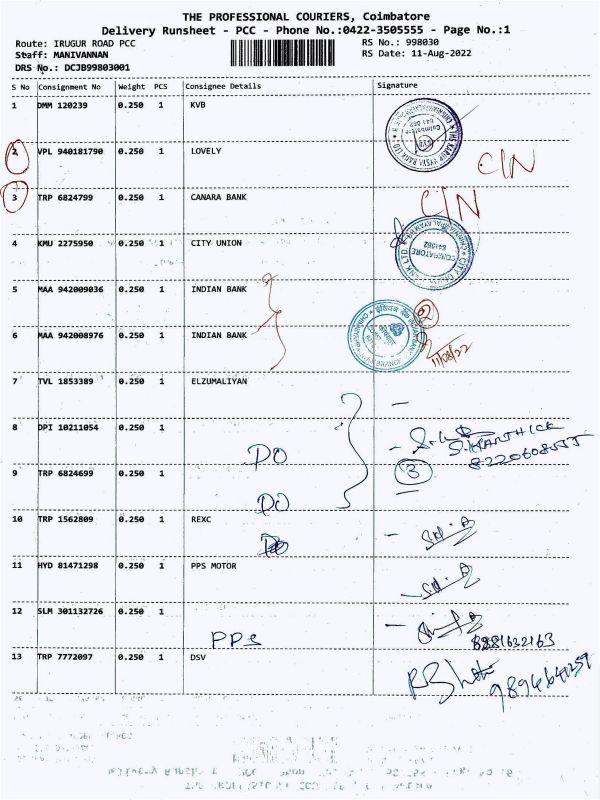 THE PROFESSIONAL COURIERS, Coimbatore
Delivery Runsheet - PCC - Phone No.:0422-3505555 - Page No.:1
Route: IRUGUR ROAD PCC
RS No.: 998030
Staff: MANIVANNAN
RS Date: 11-Aug-2022
DRS No.: DCJB99803001
S No Consignment No Weight PCS Consignee Details Signature
1 DMM 120239 0.250 1 KVB
2 VPL 940181790 0.250 1 LOVELY
C/N
3 TRP 6824799 0.250 1 CANARA BANK C/N
4 KMU 2275950 0.250 1 CITY UNION
COIMBATORE
641062
5 MAA 942009036 0.250 1 INDIAN BANK
2
6 MAA 942008976 0.250 1 INDIAN BANK
11/08/22
7 TVL 1853389 0.250 1 ELZUMALIYAN
8 DPI 10211054 0.250 1
DO
S.KARTHICK
3
9 TRP 6824699 0.250 1
DO
10 TRP 1562809 0.250 1 REXC
DO
11 HYD 81471298 0.250 1 PPS MOTOR
12 SLM 301132726 0.250 1
PPS
8881632163
13 TRP 7772097 0.250 1 DSV